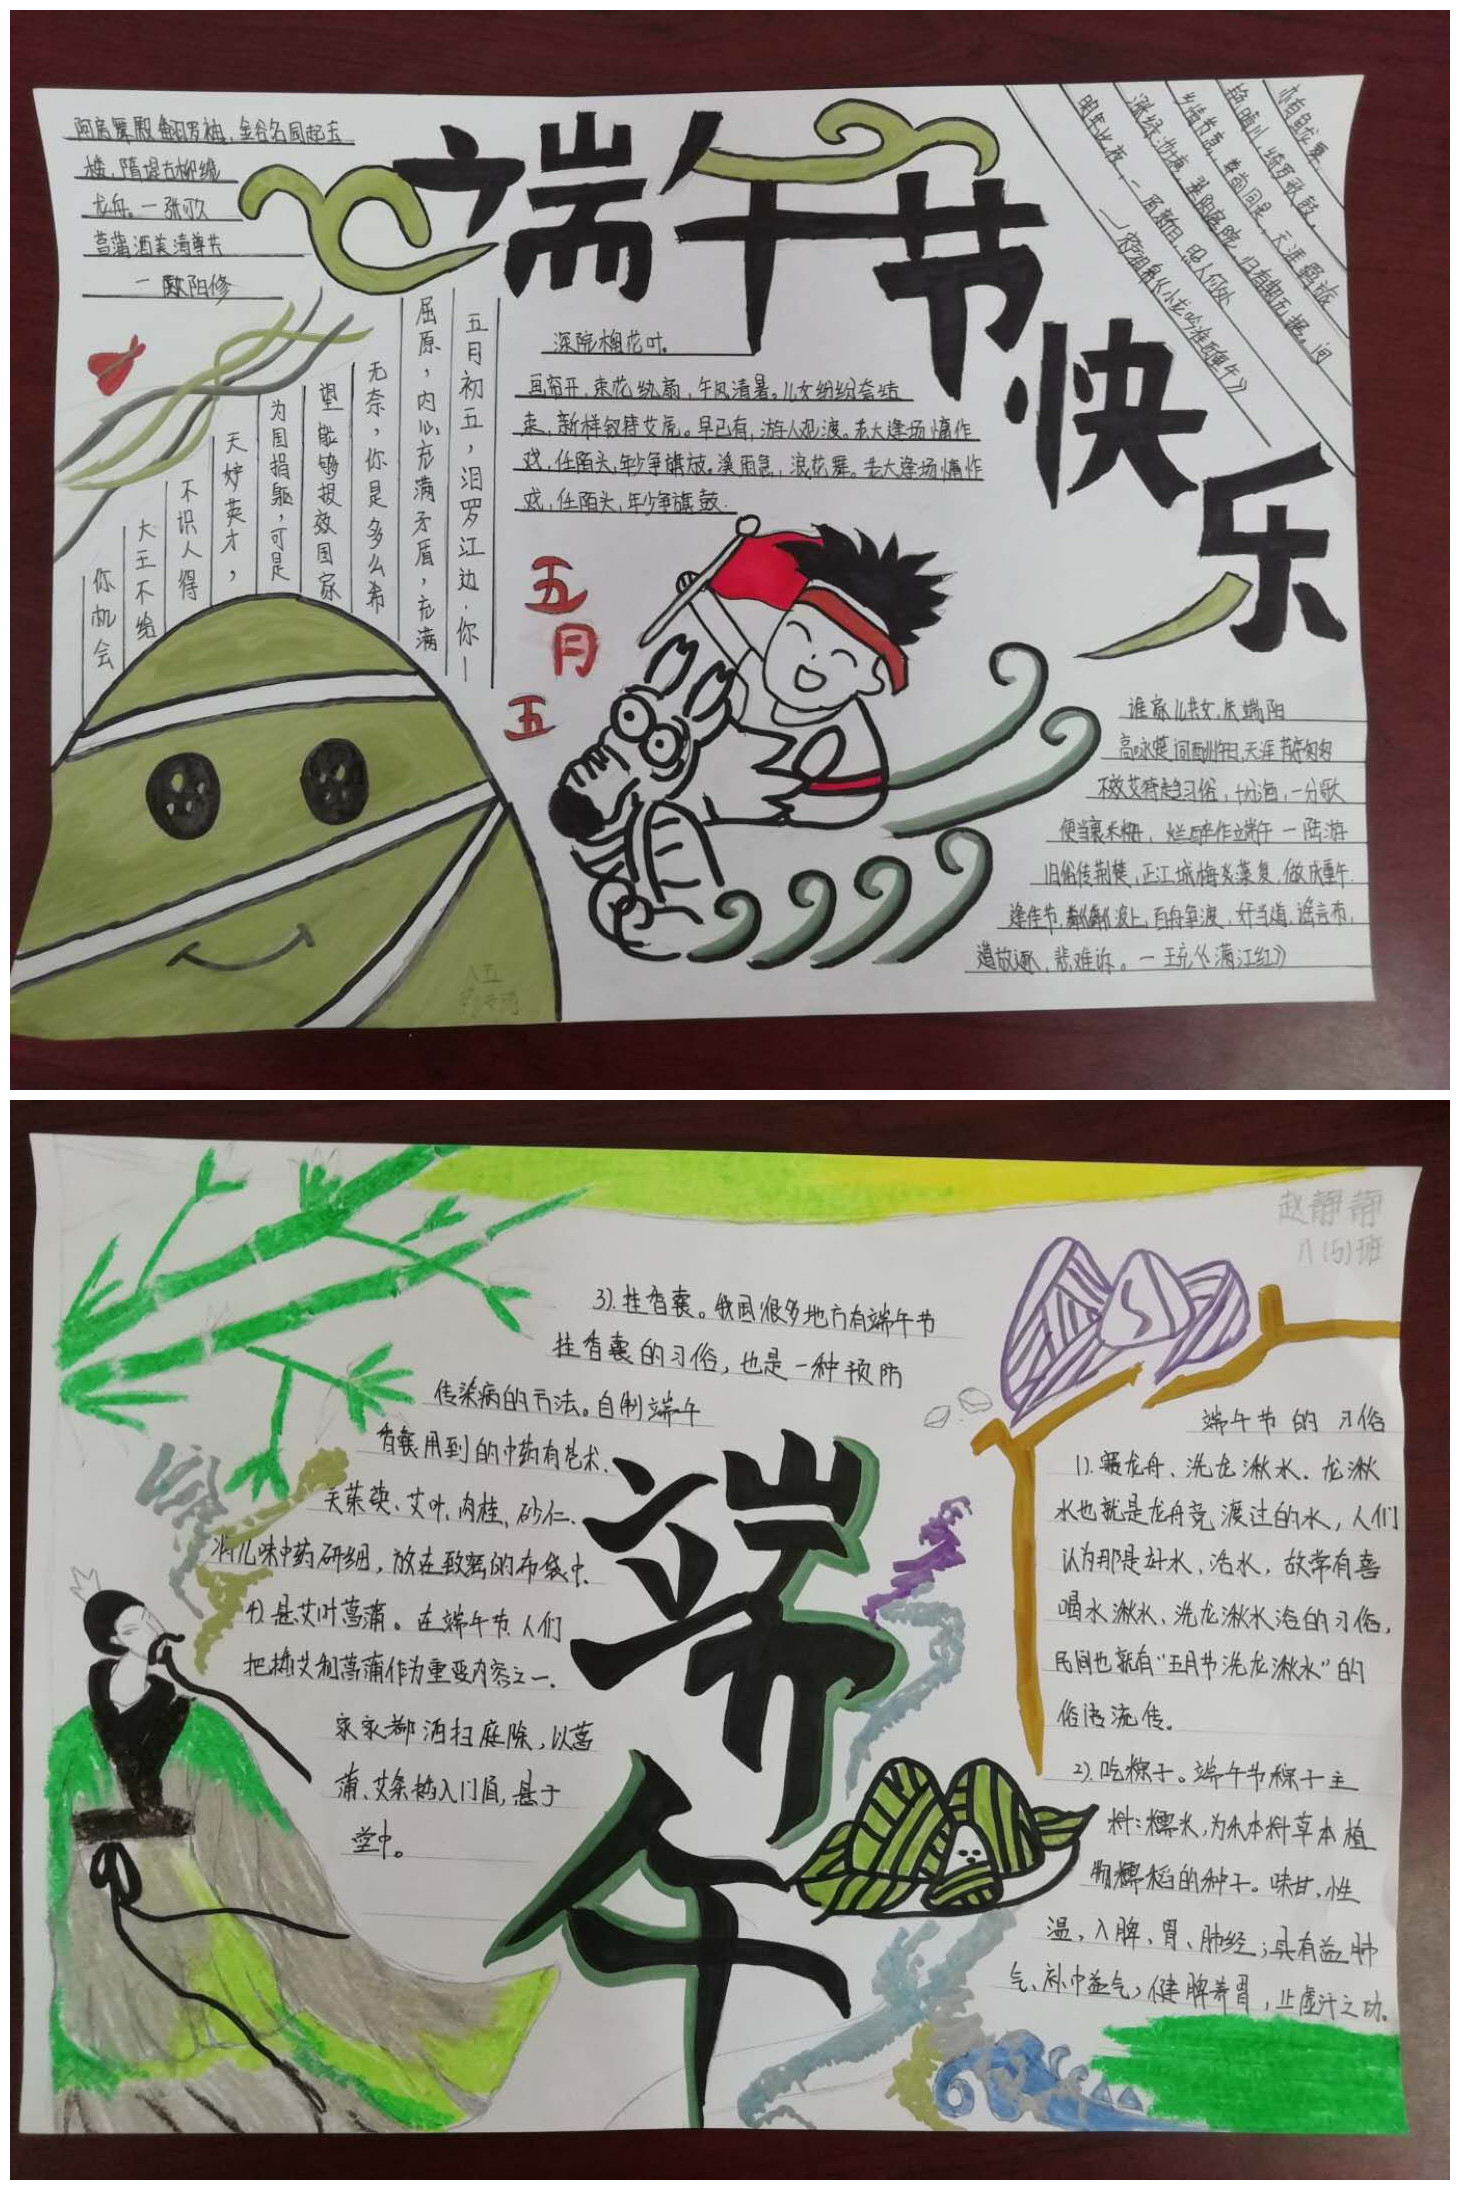 端午节快乐
阿房舞殿翻罗袖,金谷名园起玉
楼,隋堤古柳缆
龙舟。一张可久
菖蒲酒美清尊共
一欧阳修
五月初五,汨罗江边.你一
屈原,内心充满矛盾,充满
无奈,你是多么希
望能够报效国家
为国捐躯,可是
天妒英才,
不识人得
大王不给
你机会
深院榴花吐。
画帘开,束衣纨扇,午风清暑。儿女纷纷夸结
束,新样钗符艾虎。早已有,游人观渡。老大逢场慵作
戏,任陌头,年少争旗放。溪雨急,浪花舞。老大逢场慵作
戏,任陌头,年少争旗鼓.
五
月
五
亦有鱼龙戏
艳晴川,绮罗歌鼓,
乡情节意,尊前同是,天涯羁旅
涨绿池塘,翠阴庭院,归期无据。问
明年此夜,一
谁家儿共女,庆端阳
一陆游
旧俗传荆楚,正江城梅
逢佳节, 波上,百舟争渡,奸当道,谣言布,
遭放逐,悲难诉。一 《满江红》
八五
赵静静
八(5)班
3).挂香囊。我国很多地方有端午节
挂香囊的习俗,也是一种预防
传染病的方法。自制端午
香囊用到的中药有苍术、
关茱萸、艾叶、肉桂、砂仁、
将几味中药研细,放在致密的布袋中.
4).悬艾叶菖蒲。在端午节人们
把插艾和菖蒲作为重要内容之一.
家家都洒扫庭除,以菖
蒲、艾条插入门眉,悬于
堂中。
端午
端午节的习俗
1).赛龙舟、洗龙湫水.龙湫
水也就是龙舟竞渡过的水,人们
认为那是好水,活水,故常有喜
喝水湫水、洗龙湫水浴的习俗,
民间也就有“五月节洗龙湫水”的
俗语流传。
2).吃粽子。端午节粽子主
料:糯米,为禾本科草本植
物糯稻的种子。味甘,性
温,入脾、胃、肺经;具有益肺
气、补中益气,健脾养胃,止虚汗之功。